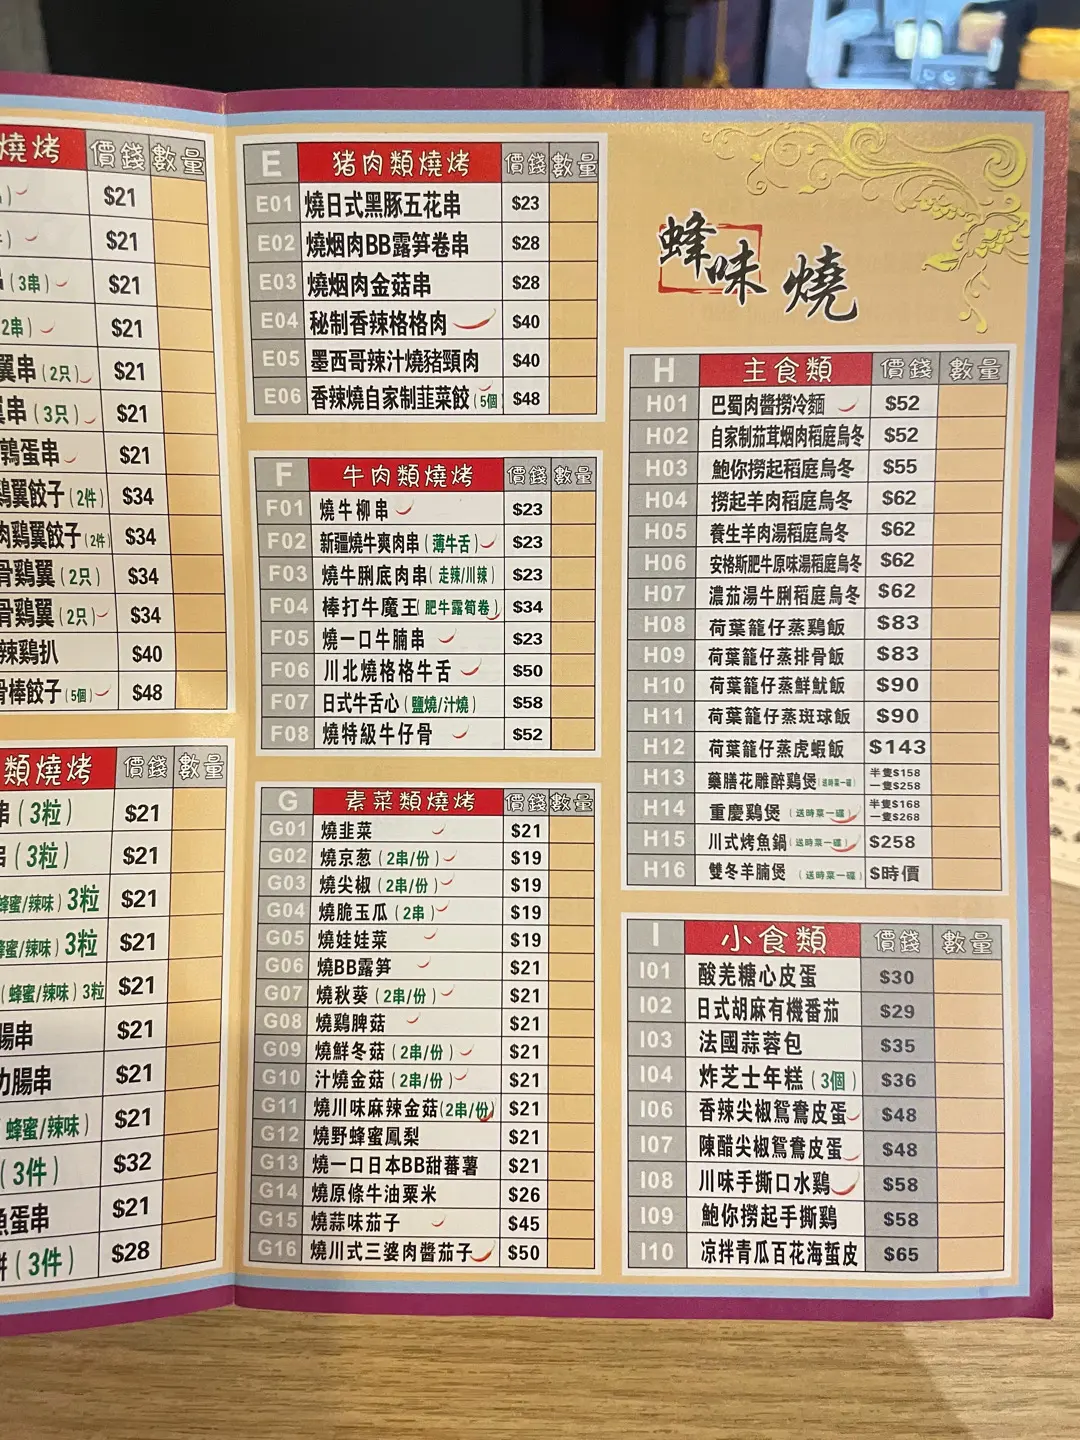 燒烤 價錢 數量
$21
$21
(3串) $21
2串) $21
翼串(2只) $21
串(3只) $21
鶉蛋串 $21
鷄翼餃子(2件) $34
肉鷄翼餃子(2件) $34
骨鷄翼(2只) $34
骨鷄翼(2只) $34
辣鷄扒 $40
骨棒餃子(5個) $48
類燒烤 價錢 數量
串(3粒) $21
(3粒) $21
蜂蜜/辣味)3粒 $21
蜂蜜/辣味)3粒 $21
(蜂蜜/辣味)3粒 $21
腸串 $21
腸串 $21
蜂蜜/辣味) $21
(3件) $32
魚蛋串 $21
(3件) $28
E 猪肉類燒烤 價錢 數量
E01 燒日式黑豚五花串 $23
E02 燒烟肉BB露笋卷串 $28
E03 燒烟肉金菇串 $28
E04 秘制香辣格格肉 $40
E05 墨西哥辣汁燒豬頸肉 $40
E06 香辣燒自家制韮菜餃(5個 $48
F 牛肉類燒烤 價錢 數量
F01 燒牛柳串 $23
F02 新疆燒牛爽肉串(薄牛舌) $23
F03 燒牛脷底肉串(走辣/川辣) $23
F04 棒打牛魔王(肥牛露筍卷) $34
F05 燒一口牛腩串 $23
F06 川北燒格格牛舌 $50
F07 日式牛舌心(鹽燒/汁燒) $58
F08 燒特級牛仔骨 $52
G 素菜類燒烤 價錢 數量
G01 燒韭菜 $21
G02 燒京葱(2串/份) $19
G03 燒尖椒(2串/份) $19
G04 燒脆玉瓜(2串) $19
G05 燒娃娃菜 $19
G06 燒BB露笋 $21
G07 燒秋葵(2串/份) $21
G08 燒鷄脾菇 $21
G09 燒鮮冬菇(2串/份) $21
G10 汁燒金菇(2串/份) $21
G11 燒川味麻辣金菇(2串/份) $21
G12 燒野蜂蜜鳳梨 $21
G13 燒一口日本BB甜蕃薯 $21
G14 燒原條牛油粟米 $26
G15 燒蒜味茄子 $45
G16 燒川式三婆肉醬茄子 $50
蜂味燒
H 主食類 價錢 數量
H01 巴蜀肉醬撈冷麵 $52
H02 自家制茄茸烟肉稻庭烏冬 $52
H03 鮑你撈起稻庭烏冬 $55
H04 撈起羊肉稻庭烏冬 $62
H05 養生羊肉湯稻庭烏冬 $62
H06 安格斯肥牛原味湯稻庭烏冬 $62
H07 濃茄湯牛脷稻庭烏冬 $62
H08 荷葉籠仔蒸鷄飯 $83
H09 荷葉籠仔蒸排骨飯 $83
H10 荷葉籠仔蒸鮮魷飯 $90
H11 荷葉籠仔蒸斑球飯 $90
H12 荷葉籠仔蒸虎蝦飯 $143
H13 藥膳花雕醉鷄煲(送時菜一碟) 半隻$158 一隻$258
H14 重慶鷄煲(送時菜一碟) 半隻$168 一隻$268
H15 川式烤魚鍋(送時菜一碟) $258
H16 雙冬羊腩煲(送時菜一碟) $時價
I 小食類 價錢 數量
I01 酸羌糖心皮蛋 $30
I02 日式胡麻有機番茄 $29
I03 法國蒜蓉包 $35
I04 炸芝士年糕(3個) $36
I06 香辣尖椒鴛鴦皮蛋 $48
I07 陳醋尖椒鴛鴦皮蛋 $48
I08 川味手撕口水鷄 $58
I09 鮑你撈起手撕鷄 $58
I10 凉拌青瓜百花海蜇皮 $65